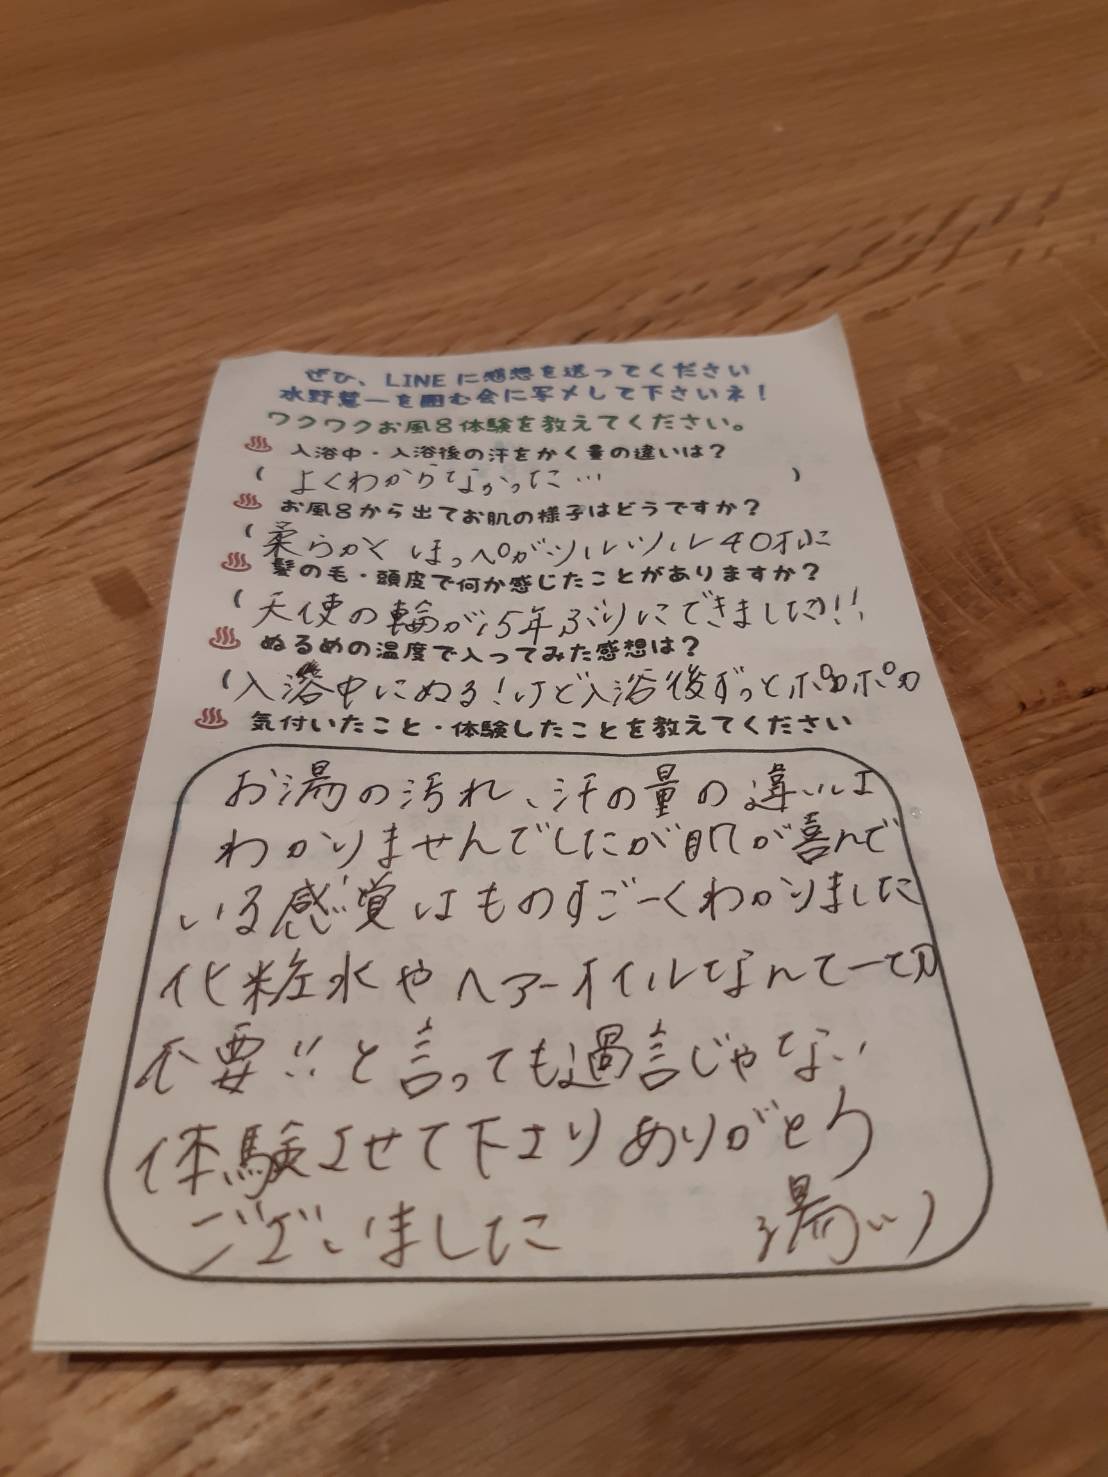 ぜひ、LINEに感想を送ってください
水野慧一を囲む会に写メして下さいネ!
ワクワクお風呂体験を教えてください。
入浴中・入浴後の汗をかく量の違いは?
( よくわからなかった… )
お風呂から出てお肌の様子はどうですか?
( 柔らかく ほっぺがツルツル 40才に
髪の毛・頭皮で何か感じたことがありますか?
( 天使の輪が15年ぶりにできました!!
ぬるめの温度で入ってみた感想は?
( 入浴中にぬる!けど入浴後ずっとポカポカ
気付いたこと・体験したことを教えてください
お湯の汚れ、汗の量の違いは
わかりませんでしたが肌が喜んで
いる感覚はものすごーくわかりました
化粧水やヘアーオイルなんて一切
不要!!と言っても過言じゃない
体験させて下さりありがとう
ございました 湯ッ